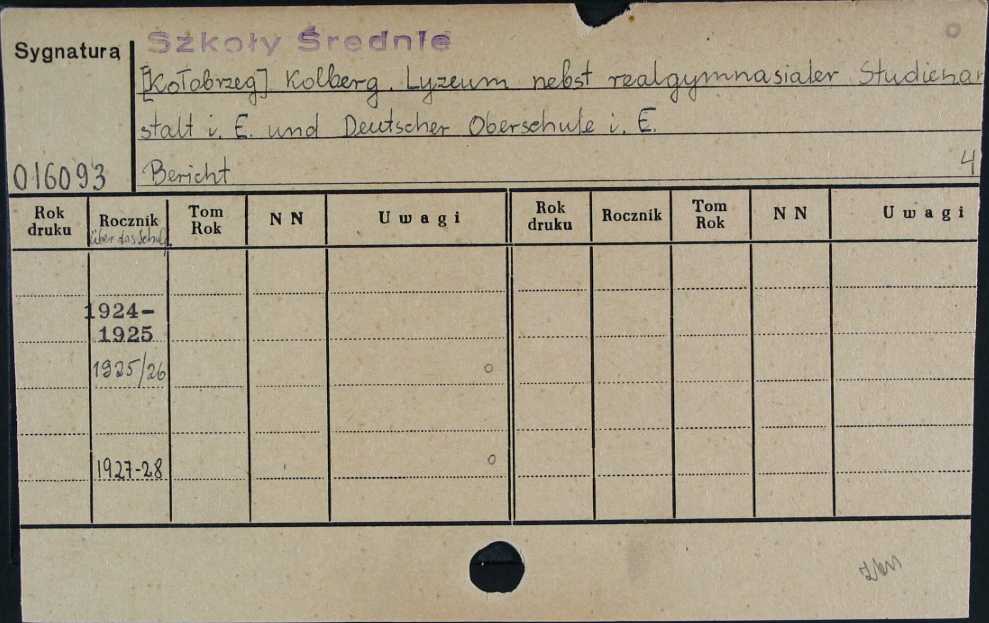 Sygnatura
Szkoły Średnie
[Kołobrzeg] Kolberg. Lyzeum nebst realgymnasialer Studienan
stalt i. E. und Deutscher Oberschule i. E.
016093
Bericht
4
Rok druku
Rocznik
über das Schulj.
Tom Rok
N N
Uwagi
Rok druku
Rocznik
Tom Rok
N N
Uwagi
1924-
1925
1925/26
o
1927-28
o